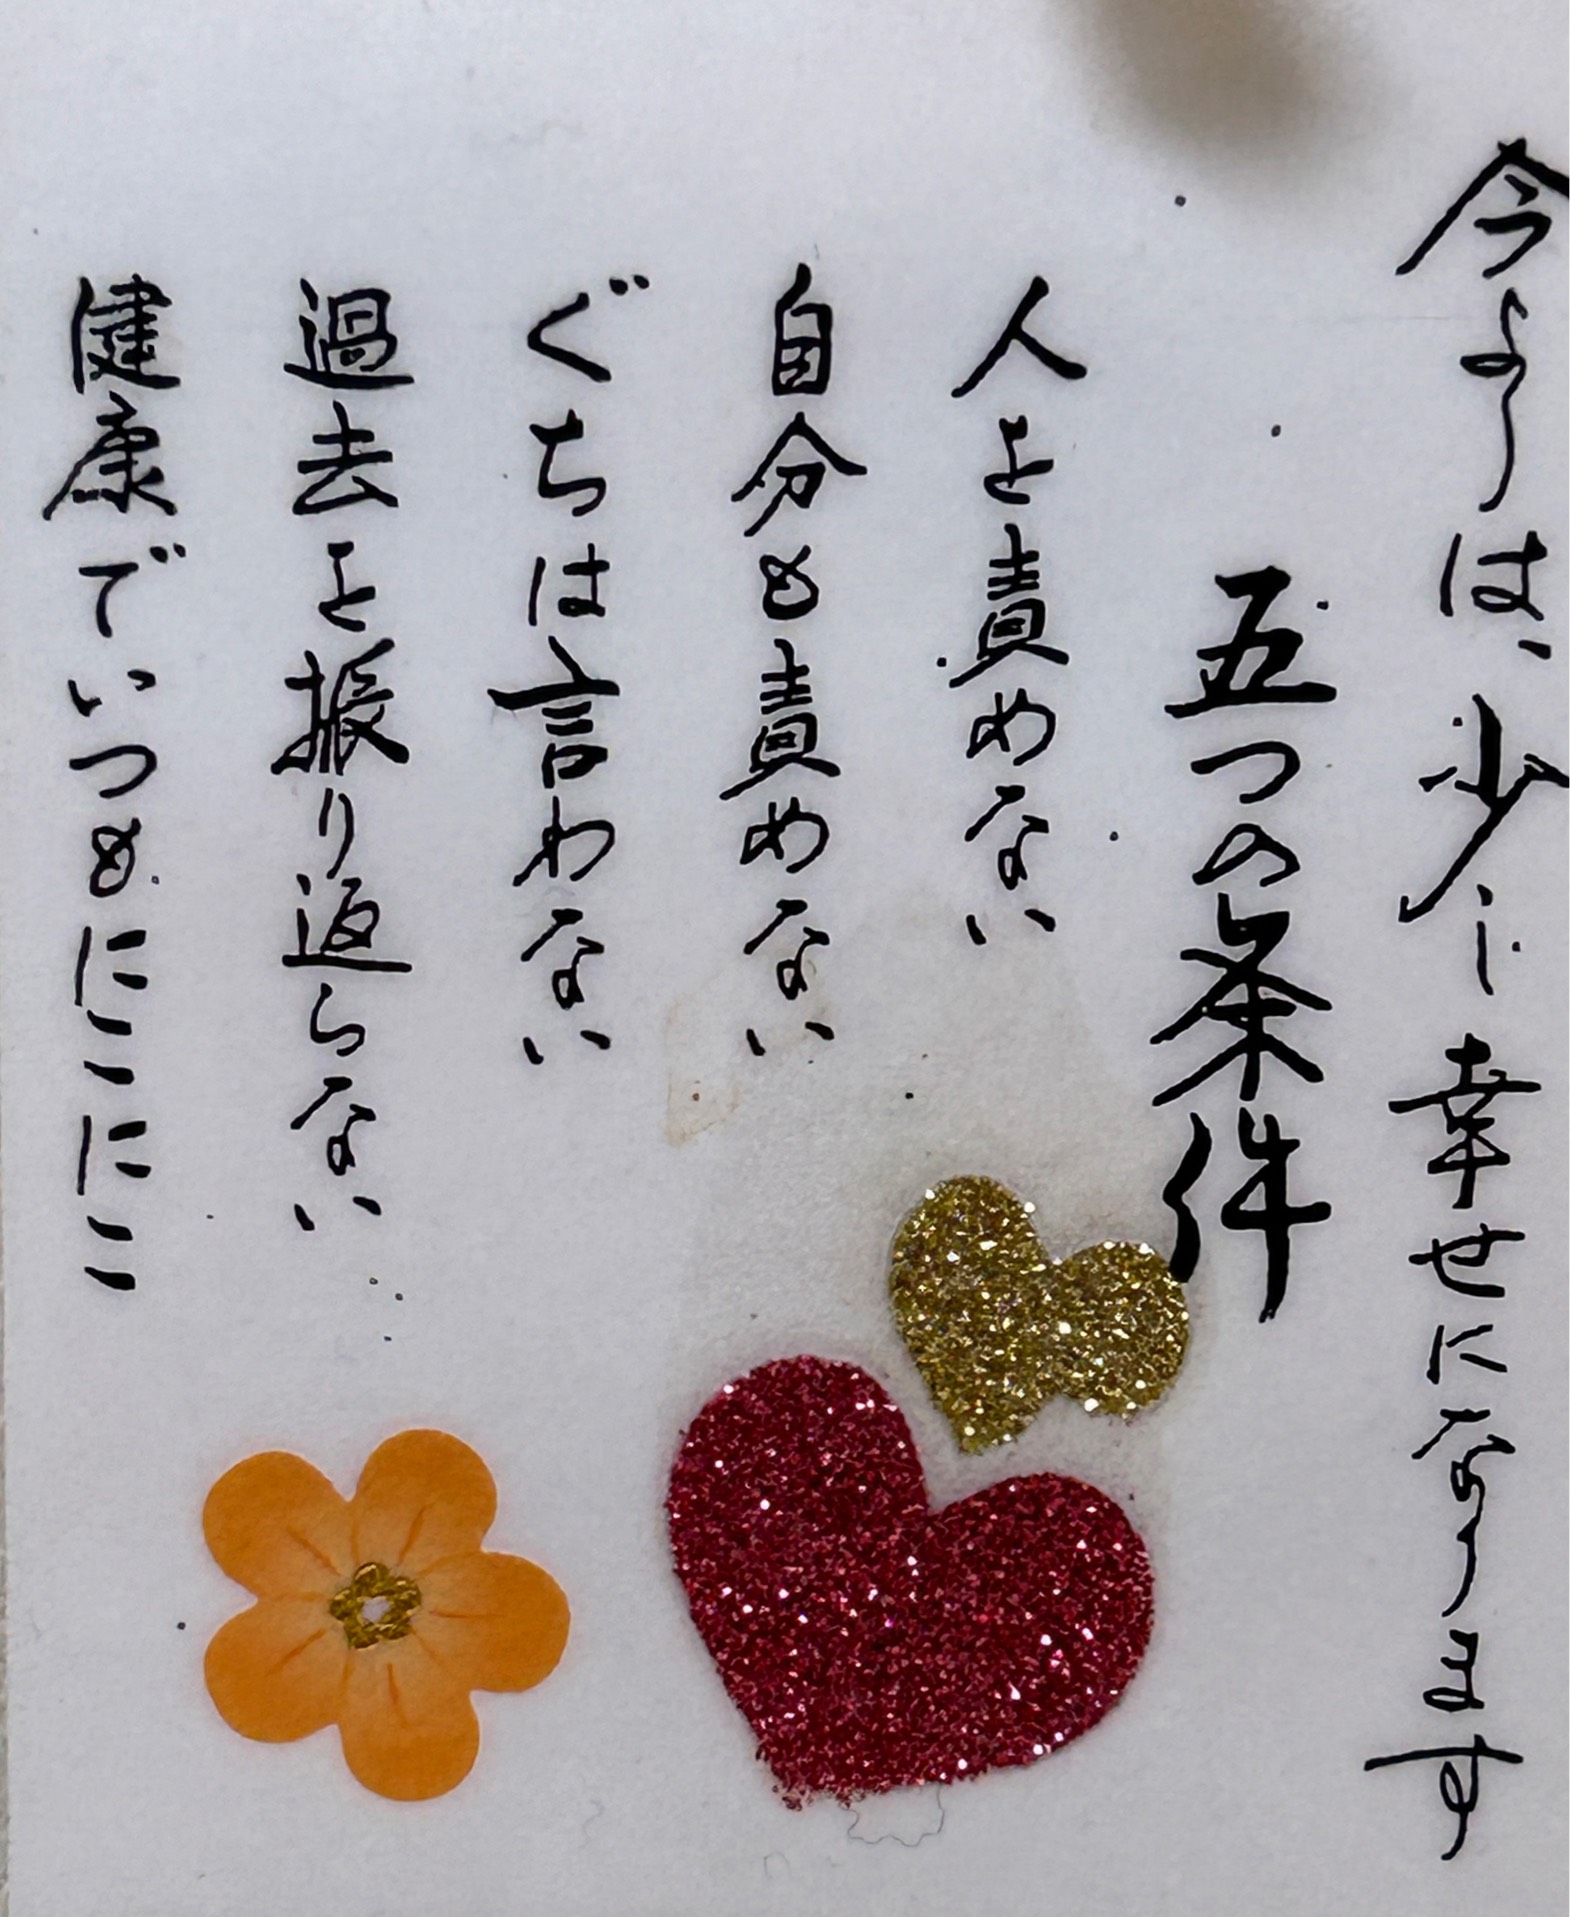 今よりは、少し幸せになります
五つの条件
人を責めない
自分も責めない
ぐちは言わない
過去を振り返らない
健康でいつもにこにこ